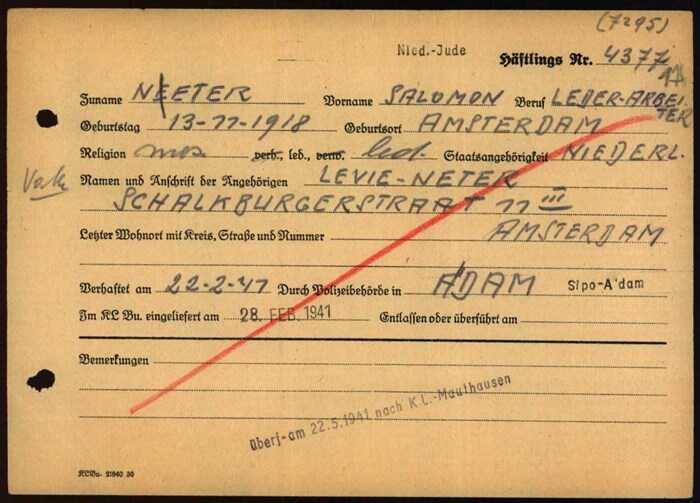 (7295)
Nied.-Jude Häftlings Nr. 4377
Zuname NEETER Vorname SALOMON Beruf LEDER-ARBEITER
Geburtstag 13-11-1918 Geburtsort AMSTERDAM
Religion mos. verh., led., verw. led. Staatsangehörigkeit NIEDERL.
Namen und Anschrift der Angehörigen LEVIE-NETER
SCHALKBURGERSTRAAT 11 III
Letzter Wohnort mit Kreis, Straße und Nummer AMSTERDAM
Verhaftet am 22-2-41 Durch Polizeibehörde in A'DAM Sipo-A'dam
Im KL Bu. eingeliefert am 28. FEB. 1941 Entlassen oder überführt am
Bemerkungen
überf. am 22.5.1941 nach K.L.-Mauthausen